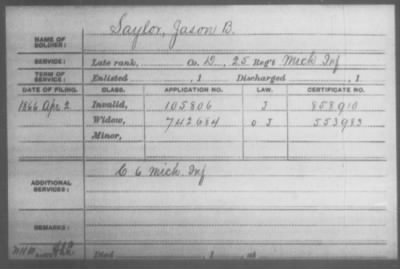 NAME OF SOLDIER: Saylor, Jason B.
SERVICE: Late rank, Co. D, 25 Reg't Mich Inf
TERM OF SERVICE: Enlisted , 1 Discharged , 1
DATE OF FILING. CLASS. APPLICATION NO. LAW. CERTIFICATE NO.
1866 Apr 2 Invalid, 105806 J 858910
Widow, 742684 o J 553983
Minor,
ADDITIONAL SERVICES: C 6 Mich. Inf
REMARKS:
Died , 1 , at